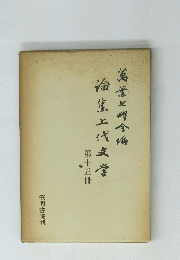 萬葉七曜会編
論集上代文学
第十五冊
笠間書院刊